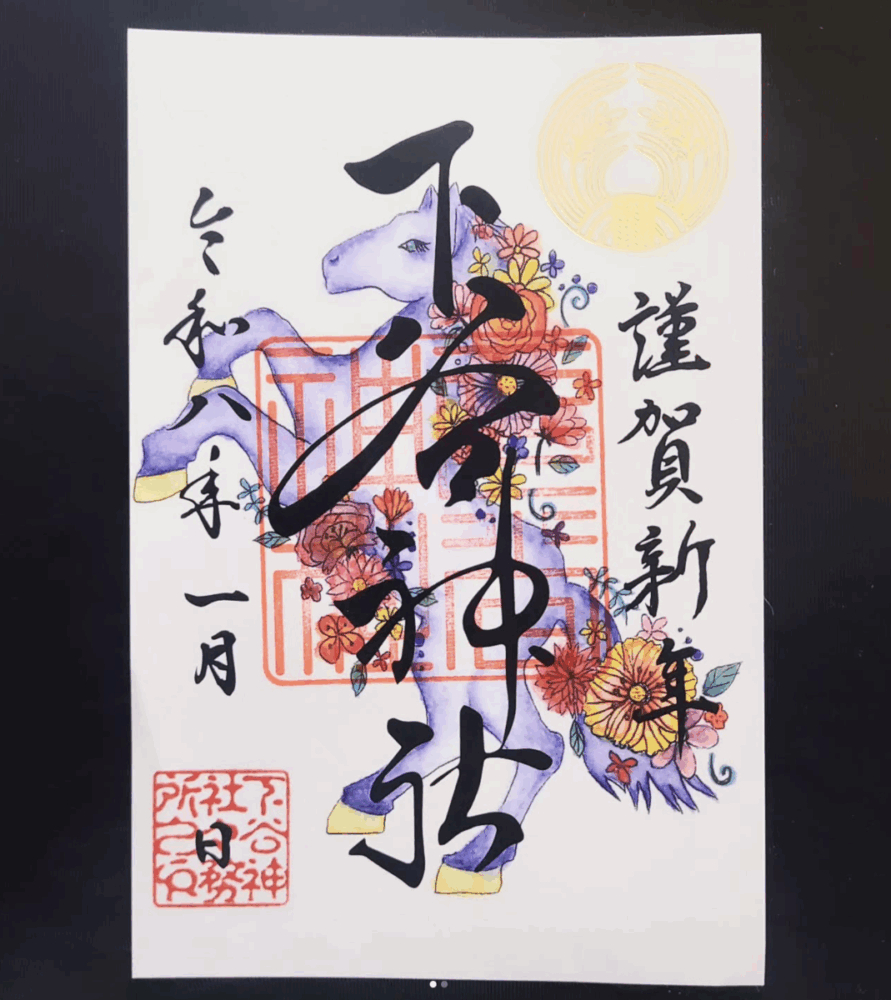 謹賀新年
下谷神社
令和八年一月 日
下谷神
社務
所之印